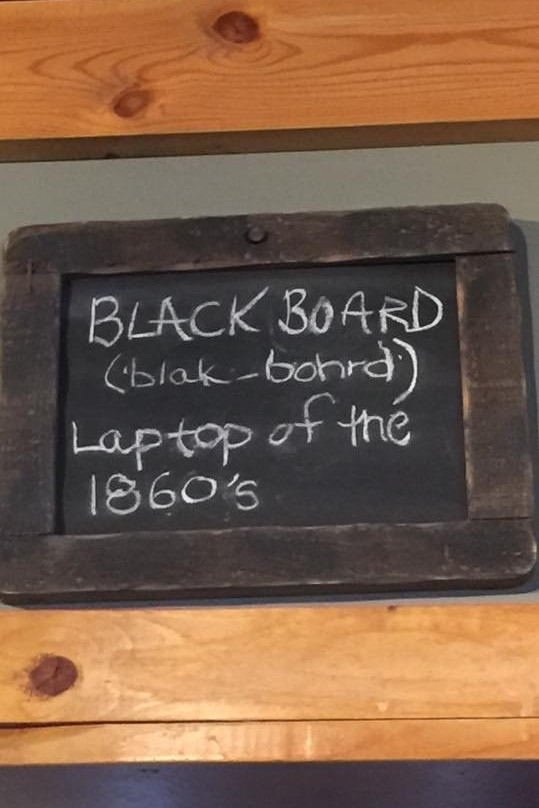 BLACK BOARD
(blak-bohrd)
Laptop of the
1860's